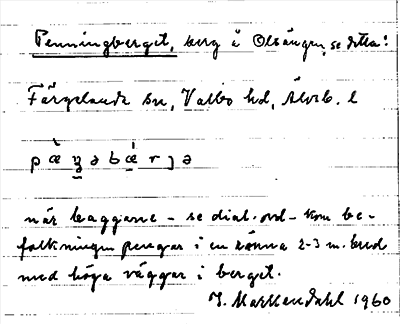 Penningberget, berg å Olsängen, se detta!
Färgelanda sn, Valbo hd, Älvsb. l
pæ̀ŋəbǽrjə
när baggarne - se dial. ord - kom be-
folkningen pengar i en ränna 2-3 m. bred
med höga väggar i berget.
J. Markendahl 1960